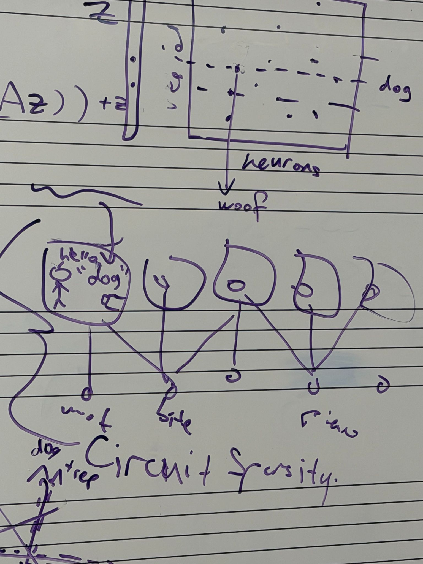 z
Az)) + z
dog
neurons
woof
hello
"dog"
woof
bite
dog
rep
Circuit Sparsity.